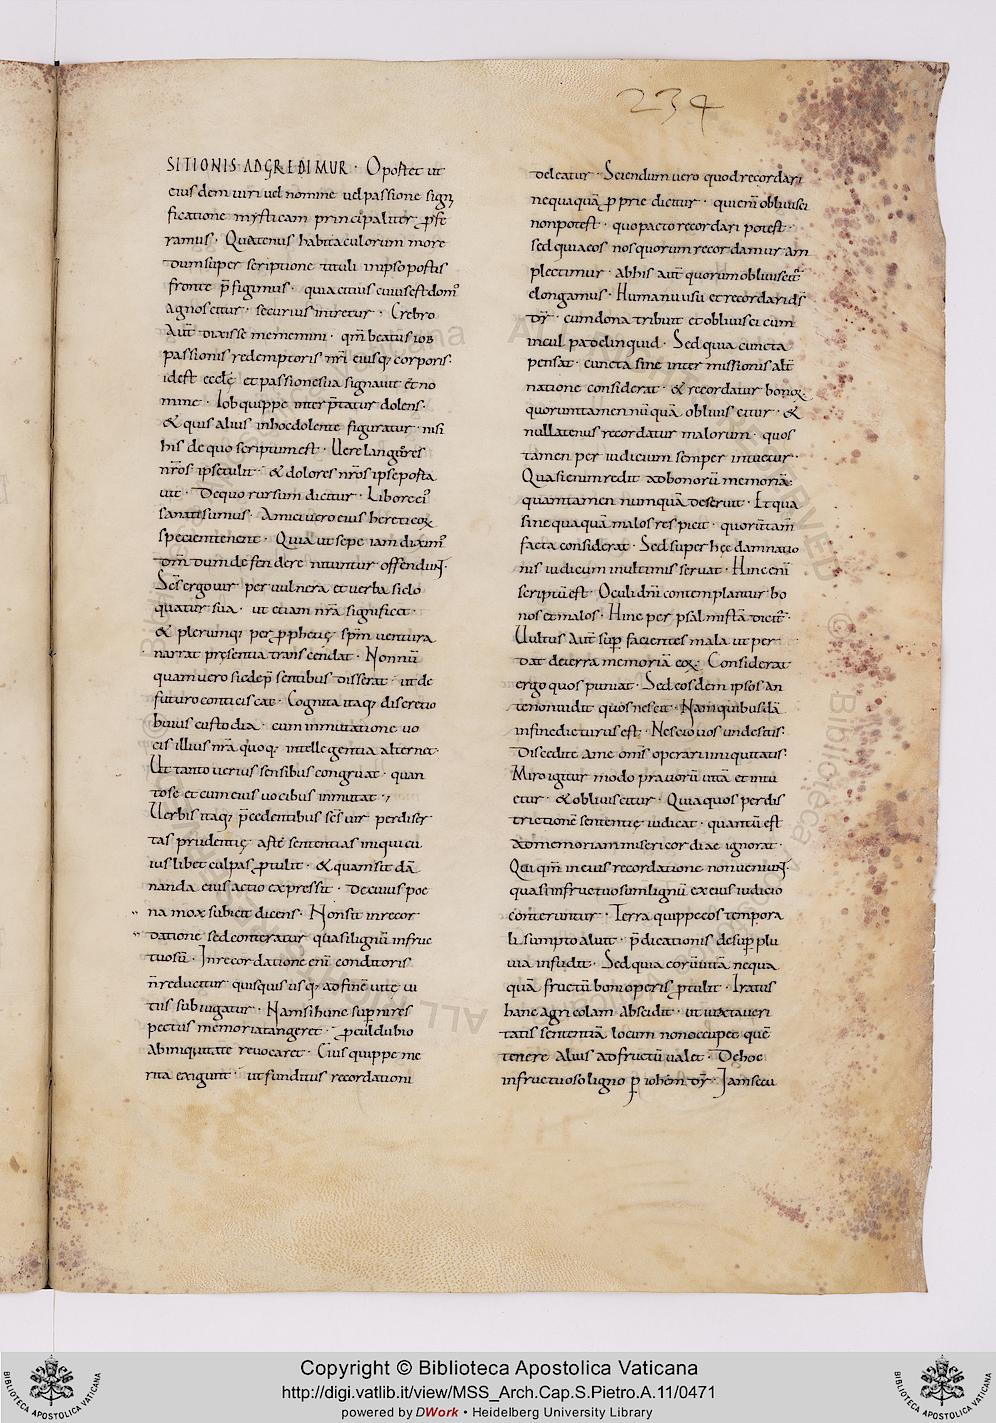 234
SITIONIS ADGREDIMUR · Oportet ut
eiusdem viri vel nomine vel passione signi
ficatione mysticam principaliter p̄fe
ramus · Quatenus habitaculorum more
dum super scriptione tituli in ipse postis
fronte p̄figimus · quia citius cuius est dom᷒
agnoscitur · securius intretur · Crebro
Aut̄ dixisse memmini · qm̄ beatus iob
passionis redemptoris n̄ri eiusq; corporis·
id est eccłę et passione sua signavit et no
mine · Iob quippe inter p̄tatur dolens·
& quis alius in hoc dolente figuratur · nisi
his de quo scriptum est · Vere languores
nr̄os ipse tulit · & dolores nr̄os ipse porta
vit · De quo rursum dicitur · Libore ei᷒
sanati sumus · Amici vero eius hereticoꝝ
specientenent · Quia ut sepe iam dixim᷒
dm̄ dum defendere nituntur offendun̄·
Sc̄s ergo vir per vulnera et verba sic lo
quatur sua · ut etiam nr̄a significet ·
& plerumq; per prophetię sp̄m ventura
narrat pręsentia transcendat · Nonnū
quam vero sic de p̄sentibus disserat · ut de
futuro conticescat · Cognita itaq; discretio
huius custodia · cum inmutatione vo
cis illius nr̄a quoq; intellegentia alternet·
Ut tanto verius sensibus congruat · quan
to se et cum eius vocibus inmutat ·,
Verbis itaq; p̄cedentibus sc̄s vir per diser
tas prudentię aste sententias iniqui cu
ius libet culpas p̄tulit · & quam sit dā
nanda eius actio expressit · De cuius poe
na mox subicit dicens · Non sit in recor
datione sed conteratur quasi lignū infruc
tuosū · In recordatione enī conditoris
n̄ reducitur quisquis usq; ad finē vitę vi
tiis subiugatur · Nam si hunc sup̄ni res
pectus memoria tangeret · p̄cul dubio
ab iniquitate revocaret · Eius quippe me
rita exigunt · ut funditus recordationi
deleatur · Sciendum vero quod recordari
ne quaquā p̄prie dicitur · qui enī oblivisci
non potest · quo pacto recordari potest·
sed quia eos nos quorum recordamur am
plectimur · ab his aut̄ quorum obliviscim᷒
elongamus · Humano usu et recordari ds̄
dr̄ · cum dona tribuit et oblivisci cum
in culpa delinquid · Sed quia cuncta
pensat · cuncta sine inter missionis alt̄
natione considerat · & recordatur bonoꝝ
quorum tamen nūquā obliviscitur · &
nullatenus recordatur malorum · quos
tamen per iudicium semper intuetur·
Quasi enim redit ad bonorū memoriā·
quam tamen numquā deseruit · Et qua
sine quaquā malos respicit · quorū tam̄
facta considerat · Sed super hęc damnatio
nis iudicium in ultimis servat · Hinc enī
scriptū est · Oculi dn̄i contemplantur bo
nos et malos · Hinc per psalmistā dicit᷒·
Vultus aut̄ sup̄ facientes mala ut per
dat de terra memoriā eoꝝ· Considerat
ergo quos puniat · Sed eosdem ipsos an
te non vidit quos nescit · Nam quibusdā
in fine dicturus est · Nescio vos unde estis·
Discedite a me om̄s operari iniquitatis·
Miro igitur modo pravorū vitā et intu
etur · & obliviscitur · Quia quos perdis
trictionē sententię iudicat · quantū est
ad memoriam misericordiae ignorat ·
Qui qm̄ in eius recordatione non veniun̄·
quasi infructuosum lignū ex eius iudicio
conteruntur · Terra quippe eos tempora
li sumpto aluit · p̄dicationis desup̄ plu
via infudit · Sed quia corū vita nequa
quā fructū boni operis p̄tulit · Iratus
hanc agricolam abscidit · ut iuxta veri
tatis sententiā locum non occupet quē
tenere alius ad fructū valet · De hoc
infructuoso ligno p̄ iohēn dr̄ · Iam secu
Copyright © Biblioteca Apostolica Vaticana
http://digi.vatlib.it/view/MSS_Arch.Cap.S.Pietro.A.11/0471
powered by DWork • Heidelberg University Library